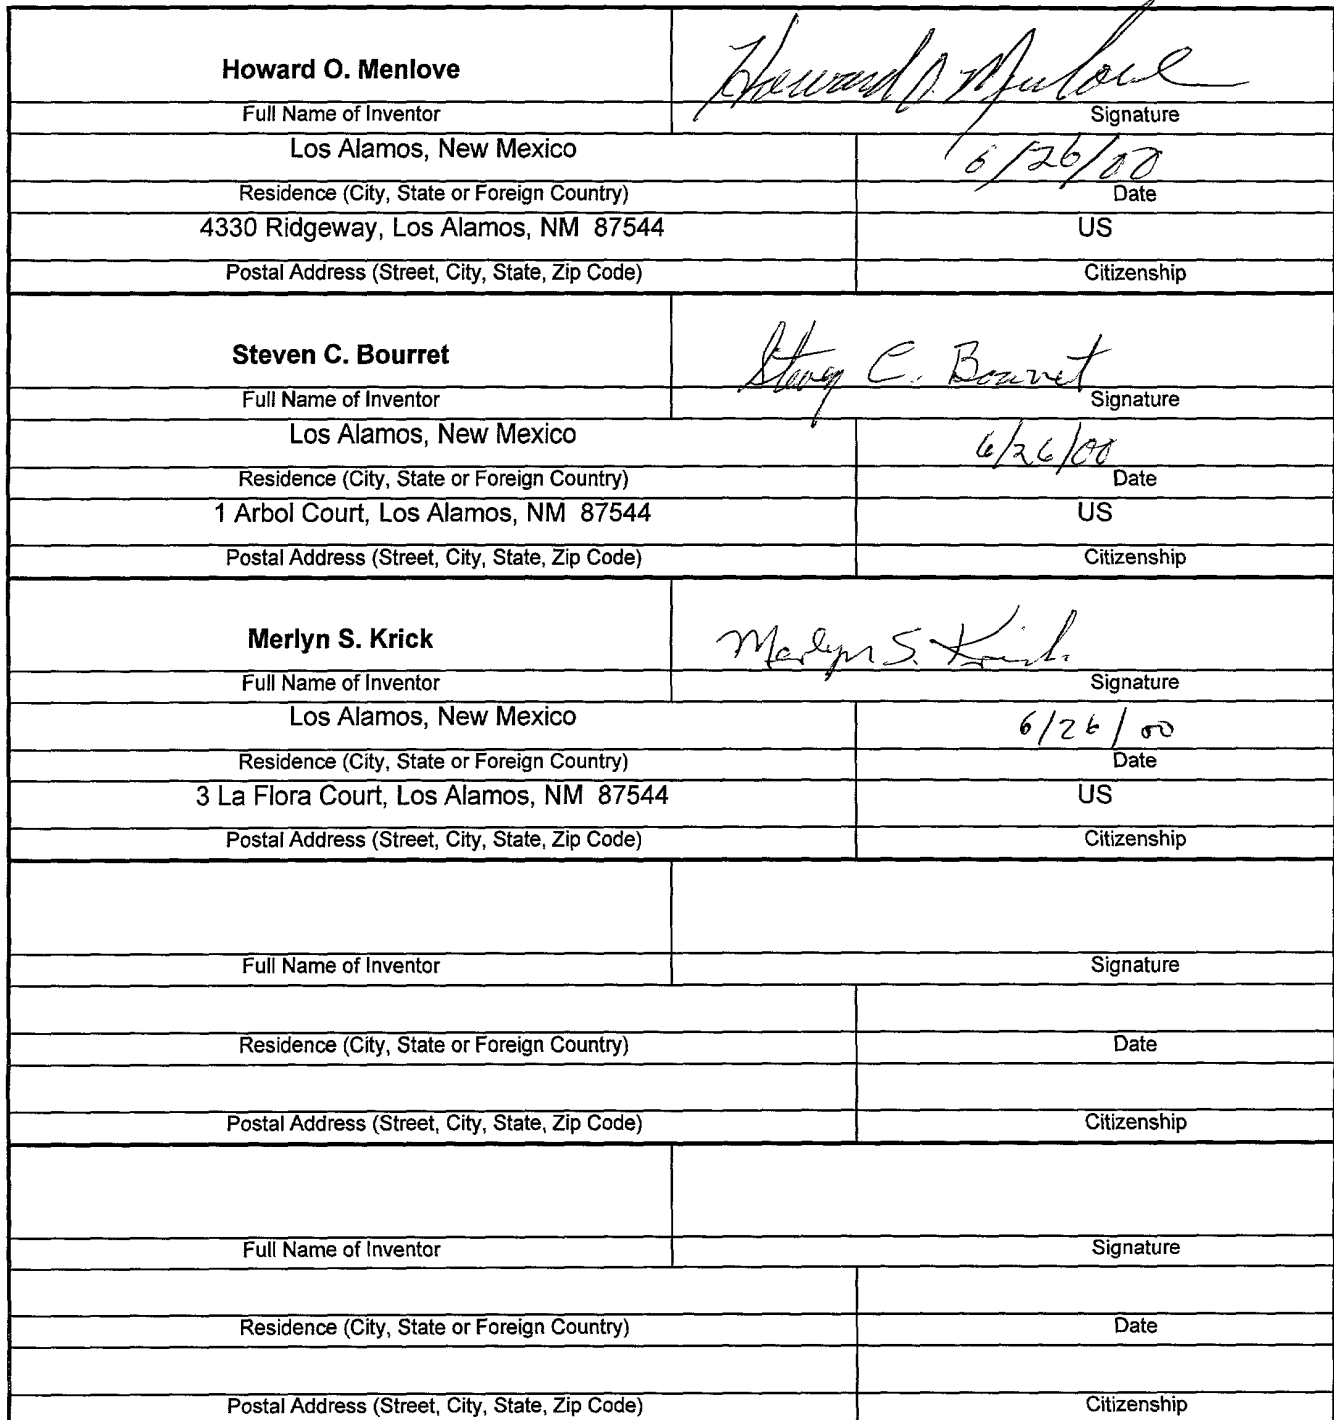 Howard O. Menlove Howard O. Menlove
Full Name of Inventor Signature
Los Alamos, New Mexico 6/26/00
Residence (City, State or Foreign Country) Date
4330 Ridgeway, Los Alamos, NM 87544 US
Postal Address (Street, City, State, Zip Code) Citizenship
Steven C. Bourret Steven C. Bourret
Full Name of Inventor Signature
Los Alamos, New Mexico 6/26/00
Residence (City, State or Foreign Country) Date
1 Arbol Court, Los Alamos, NM 87544 US
Postal Address (Street, City, State, Zip Code) Citizenship
Merlyn S. Krick Merlyn S. Krick
Full Name of Inventor Signature
Los Alamos, New Mexico 6/26/00
Residence (City, State or Foreign Country) Date
3 La Flora Court, Los Alamos, NM 87544 US
Postal Address (Street, City, State, Zip Code) Citizenship
Full Name of Inventor Signature
Residence (City, State or Foreign Country) Date
Postal Address (Street, City, State, Zip Code) Citizenship
Full Name of Inventor Signature
Residence (City, State or Foreign Country) Date
Postal Address (Street, City, State, Zip Code) Citizenship